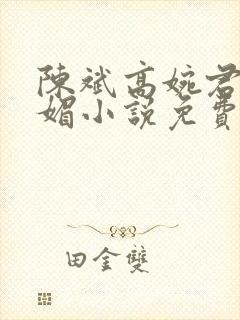 陳斌高婉君
媚小說免費
田金雙